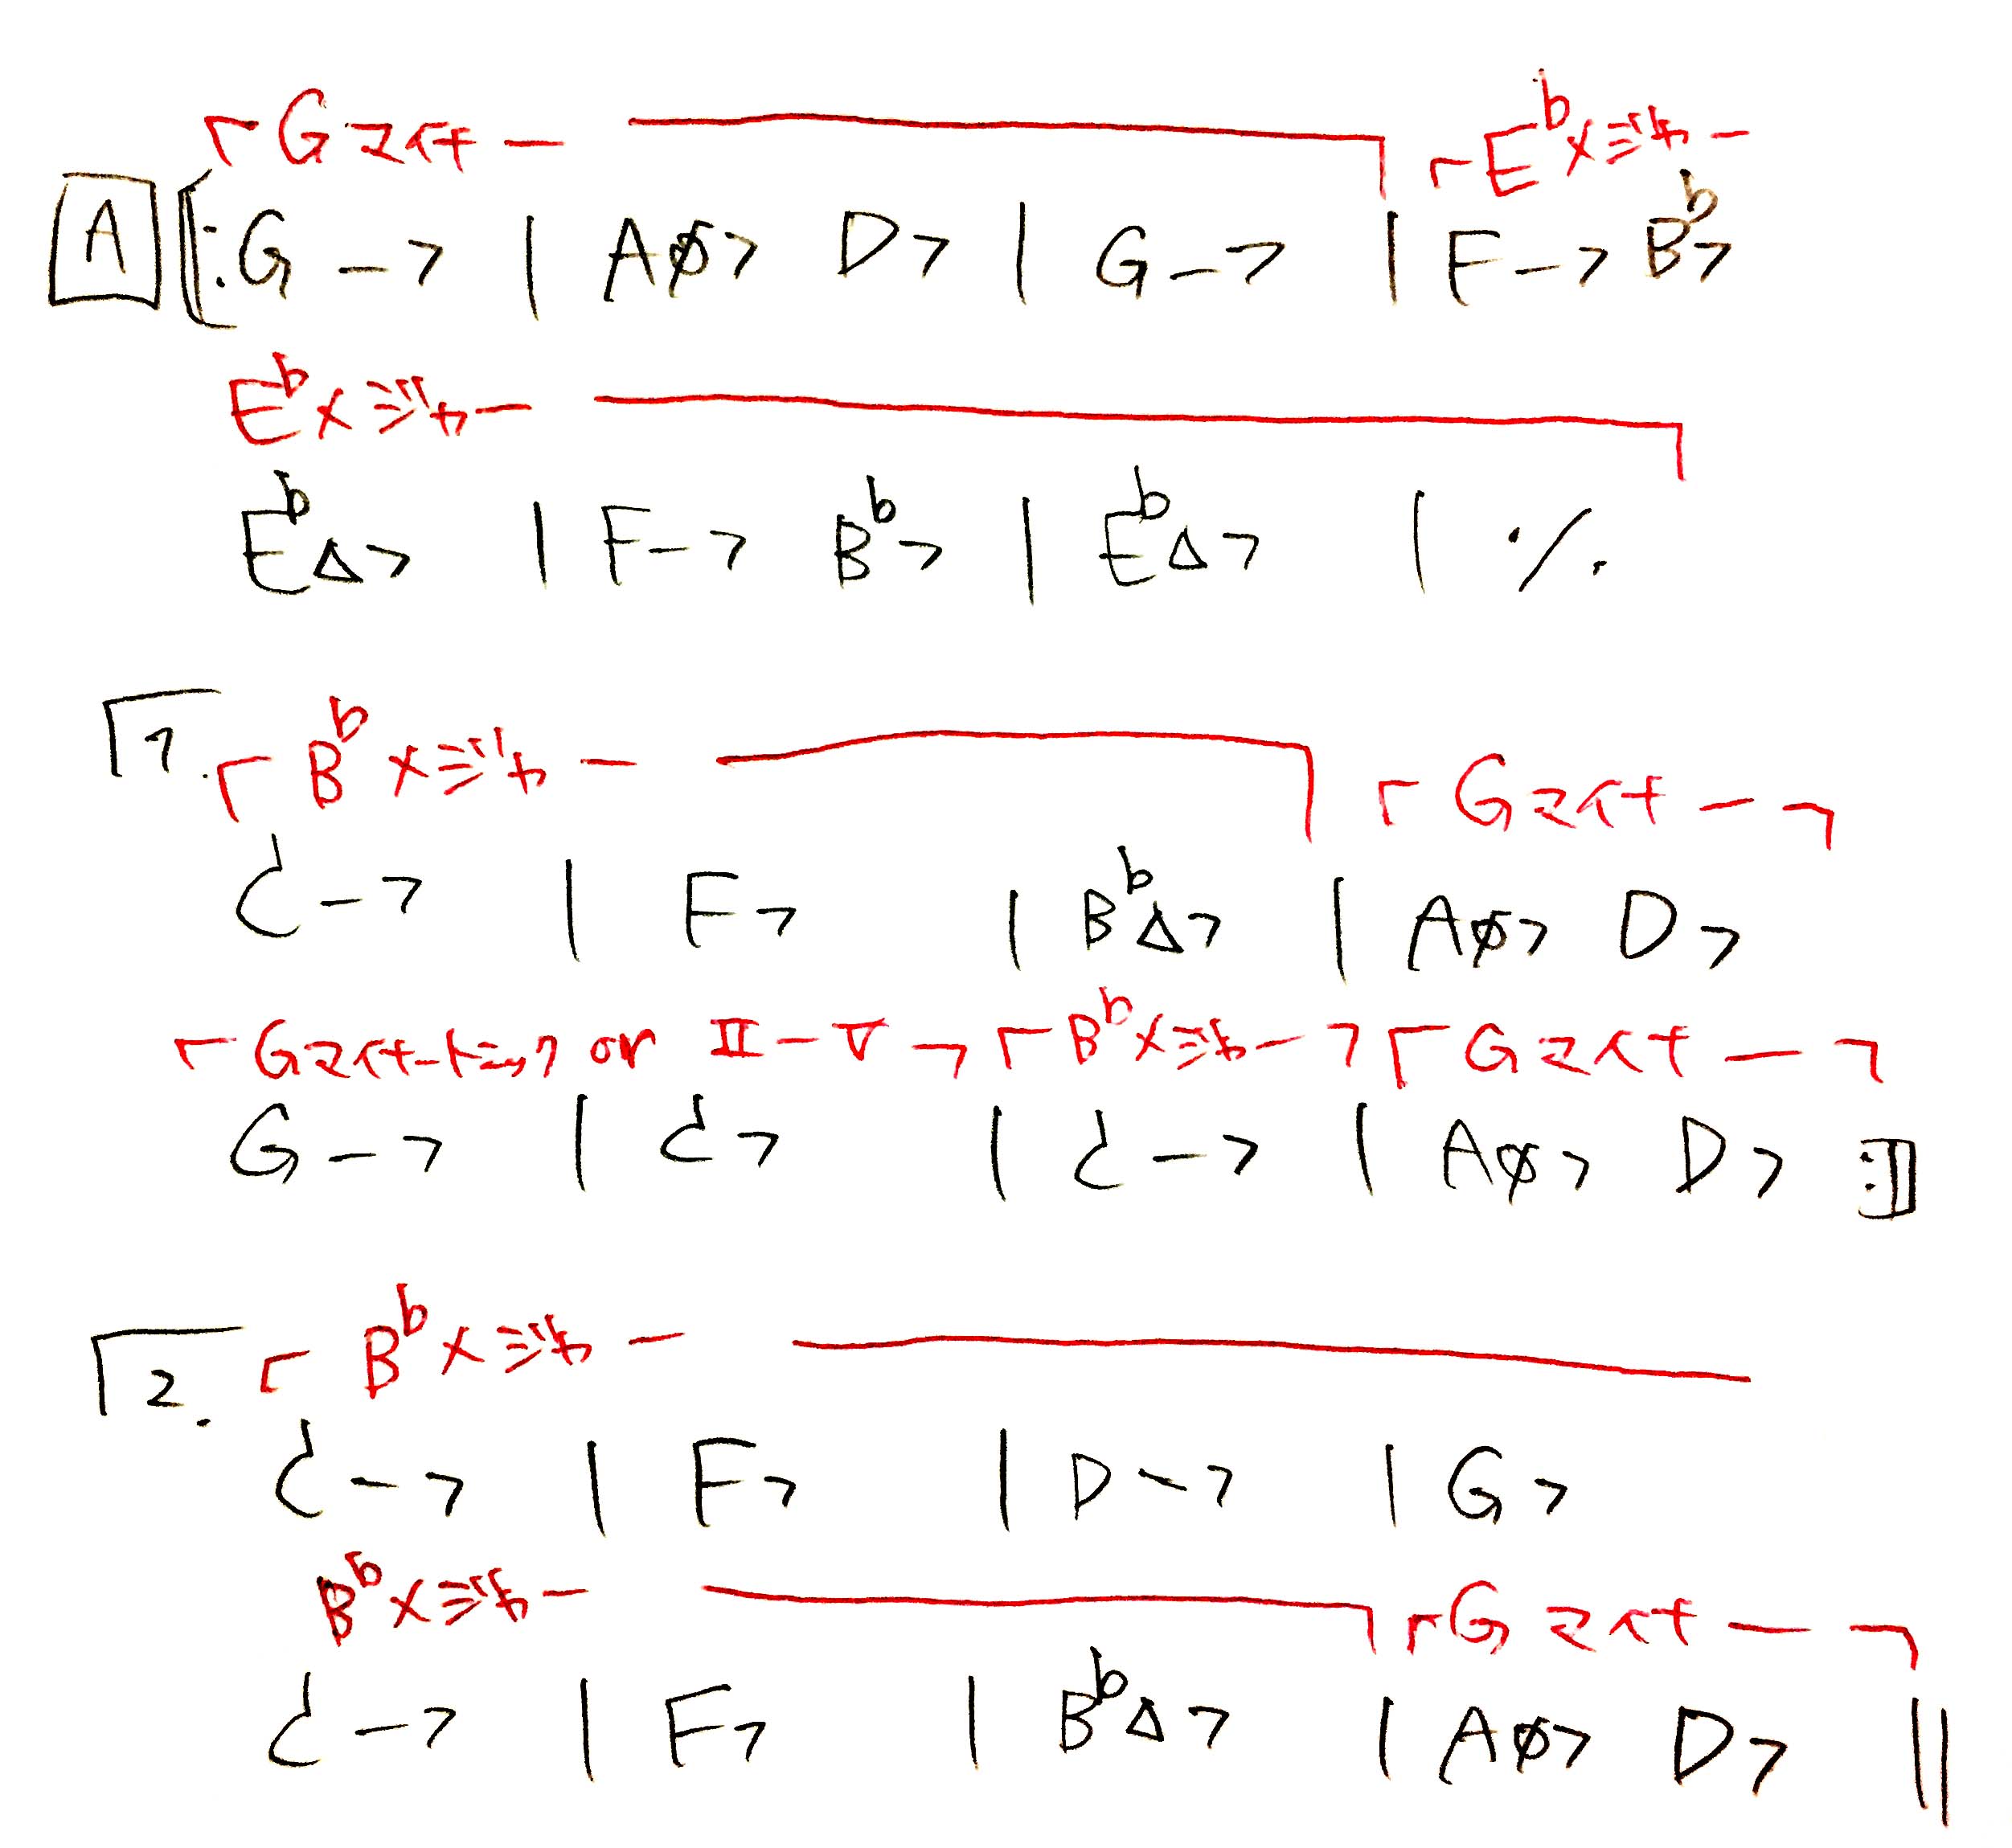 Gマイナー E♭メジャー
A G-7 | Aø7 D7 | G-7 | F-7 B♭7
E♭メジャー
E♭Δ7 | F-7 B♭7 | E♭Δ7 | ٪
1. B♭メジャー Gマイナー
C-7 | F7 | B♭Δ7 | Aø7 D7
Gマイナートニック or II-V B♭メジャー Gマイナー
G-7 | C7 | C-7 | Aø7 D7 :||
2. B♭メジャー
C-7 | F7 | D-7 | G7
B♭メジャー Gマイナー
C-7 | F7 | B♭Δ7 | Aø7 D7 ||